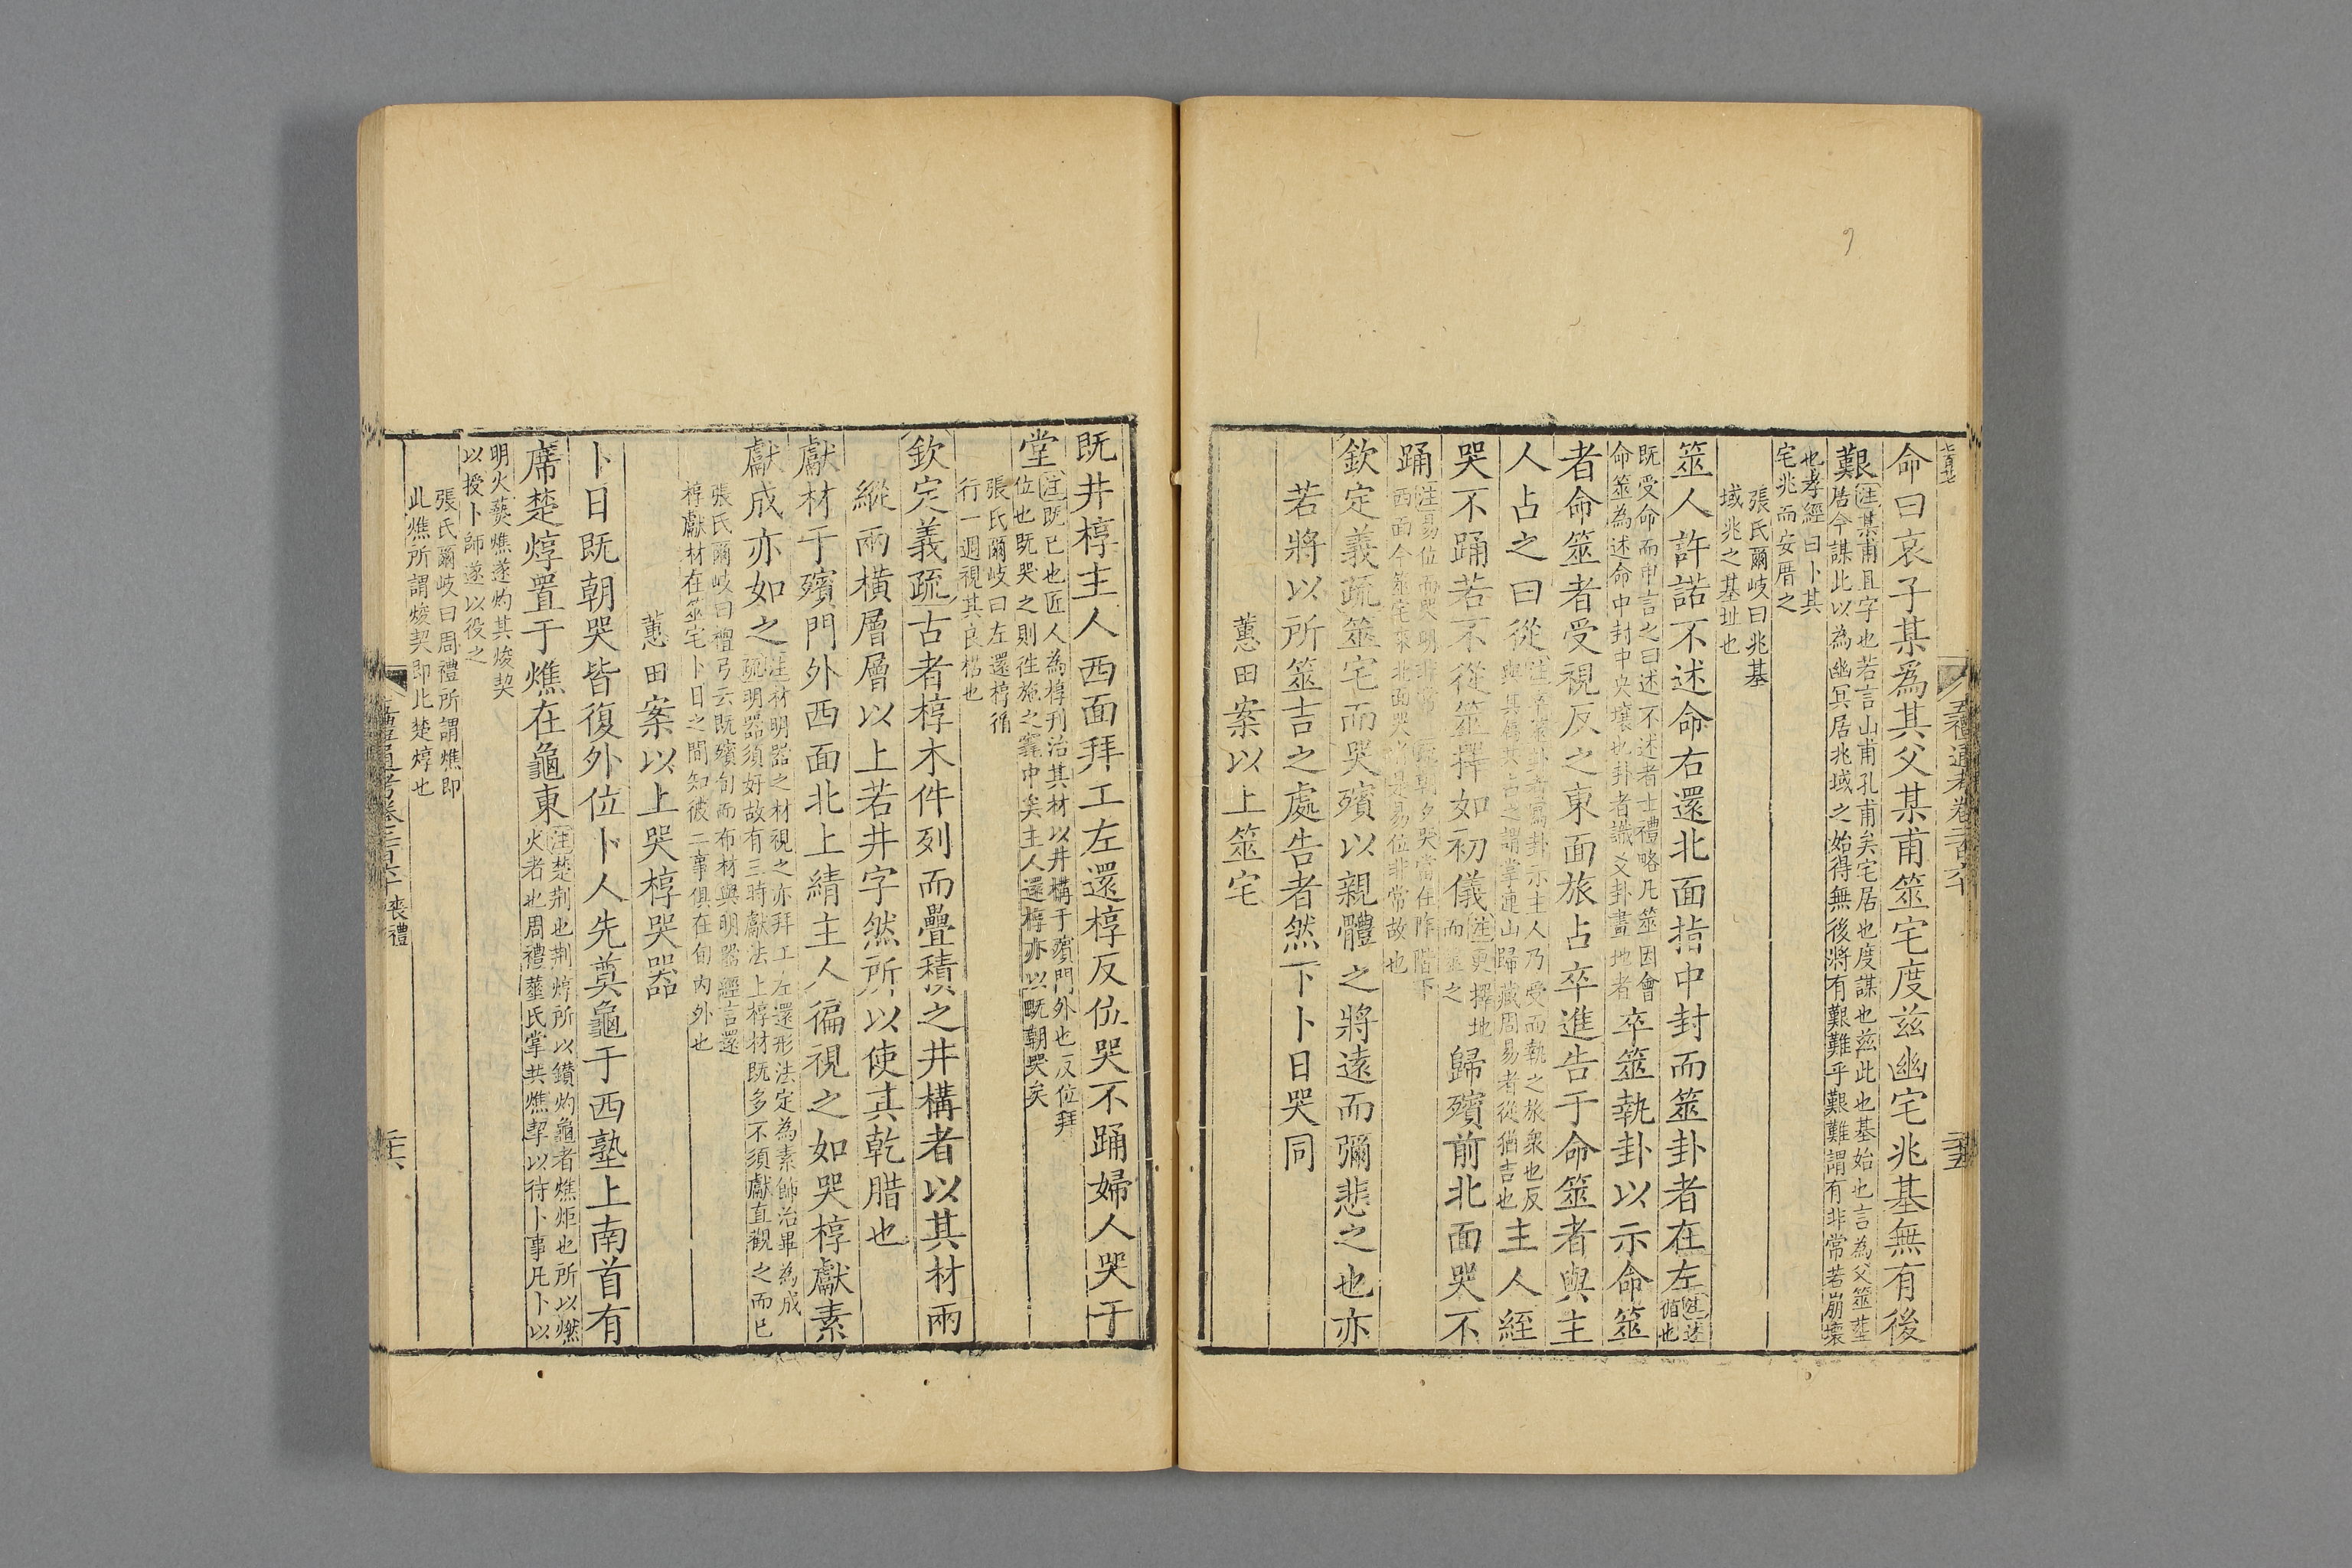 命曰哀子某為其父某甫筮宅度兹幽宅兆基無有後
艱
注某甫且字也若言山甫孔甫矣宅居也度謀也兹此也基始也言為父筮葬
居今謀此以為幽冥居兆域之始得無後將有艱難乎艱難謂有非常若崩壞
也孝經曰卜其
宅兆而安厝之
張氏爾岐曰兆基
域兆之基址也
筮人許諾不述命右還北面指中封而筮卦者在左
注述
循也
既受命而申言之曰述不述者士禮略凡筮因會
命筮為述命中封中央壤也卦者識爻卦畫地者
卒筮執卦以示命筮
者命筮者受視反之東面旅占卒進告于命筮者與主
人占之曰從
注卒筮卦者寫卦示主人乃受而執之旅衆也反
與其屬共占之謂掌連山歸藏周易者從猶吉也
主人絰
哭不踊若不從筮擇如初儀
注更擇地
而筮之
歸殯前北面哭不
踊
注易位而哭明非常疏朝夕哭當在阼階下
西面今筮宅來北面哭者是易位非常故也
欽定義疏筮宅而哭殯以親體之將遠而彌悲之也亦
若將以所筮吉之處告者然下卜日哭同
蕙田案以上筮宅
既井椁主人西面拜工左還椁反位哭不踊婦人哭于
堂
注既已也匠人為椁刊治其材以井構于殯門外也反位拜
位也既哭之則往施之竁中矣主人還椁亦以既朝哭矣
張氏爾岐曰左還椁循
行一週視其良楛也
欽定義疏古者椁木件列而疊積之井構者以其材兩
縱兩橫層層以上若井字然所以使其乾腊也
獻材于殯門外西面北上綪主人徧視之如哭椁獻素
獻成亦如之
注材明器之材視之亦拜工左還形法定為素飾治畢為成
疏明器須好故有三時獻法上椁材既多不須獻直觀之而已
張氏爾岐曰檀弓云既殯旬而布材與明器經言還
椁獻材在筮宅卜日之間知彼二事俱在旬內外也
蕙田案以上哭椁哭器
卜日既朝哭皆復外位卜人先奠龜于西塾上南首有
席楚焞置于燋在龜東
注楚荆也荆焞所以鑽灼龜者燋炬也所以燃
火者也周禮菙氏掌共燋挈以待卜事凡卜以
明火爇燋遂灼其焌契
以授卜師遂以役之
張氏爾岐曰周禮所謂燋即
此燋所謂焌契即此楚焞也